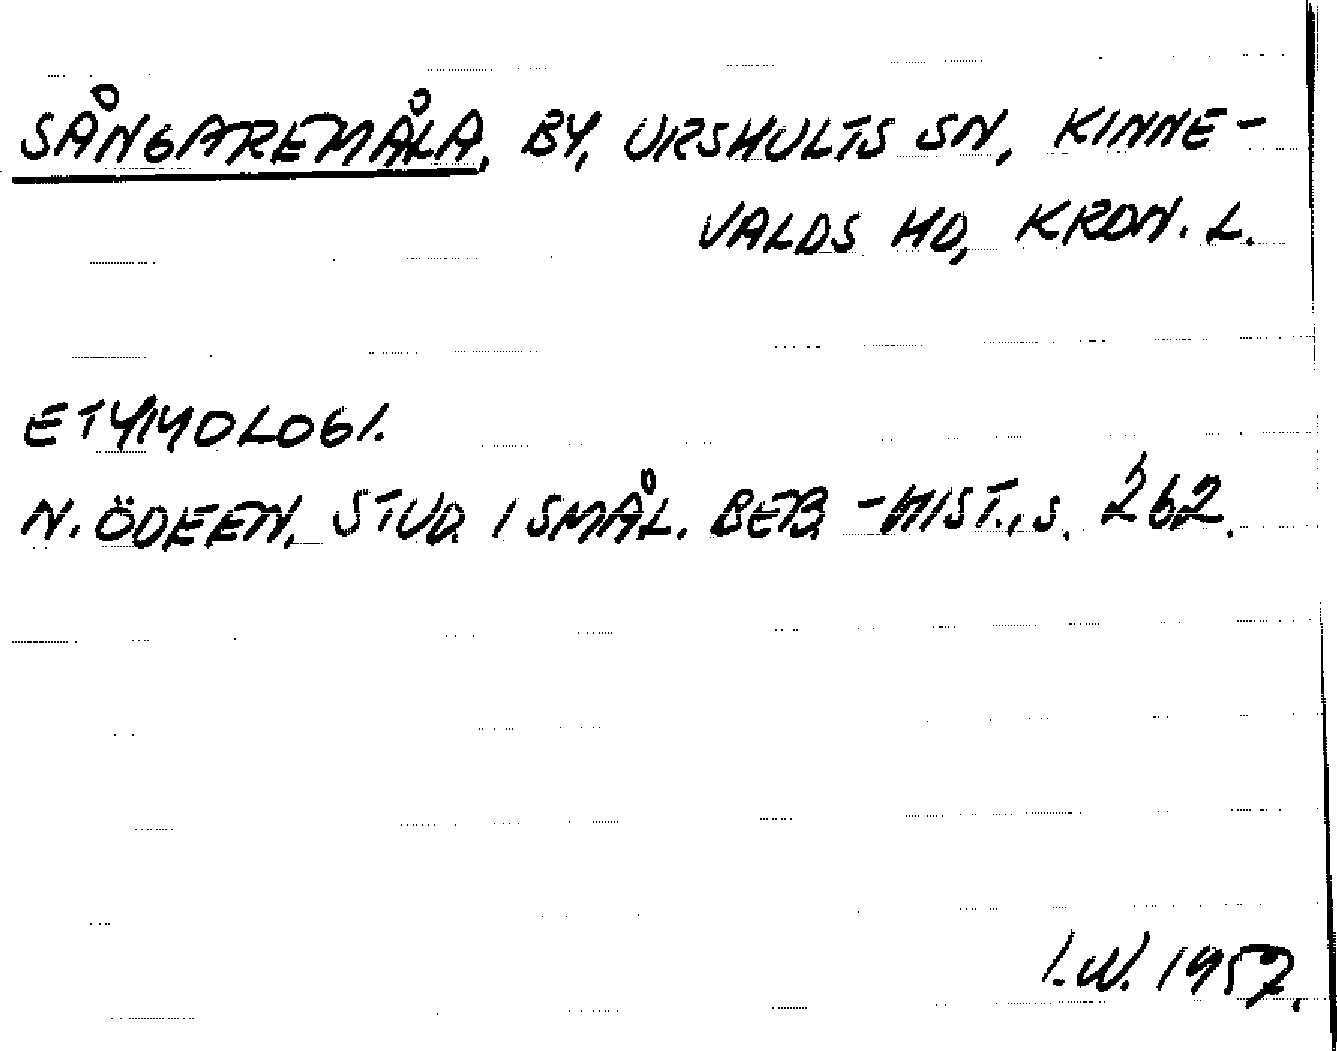 SÅNGAREMÅLA, BY, URSHULTS SN, KINNE-
VALDS HD, KRON. L.
ETYMOLOGI.
N. ÖDEEN, STUD. I SMÅL. BEB.-HIST., S. 262.
I.W. 1957.